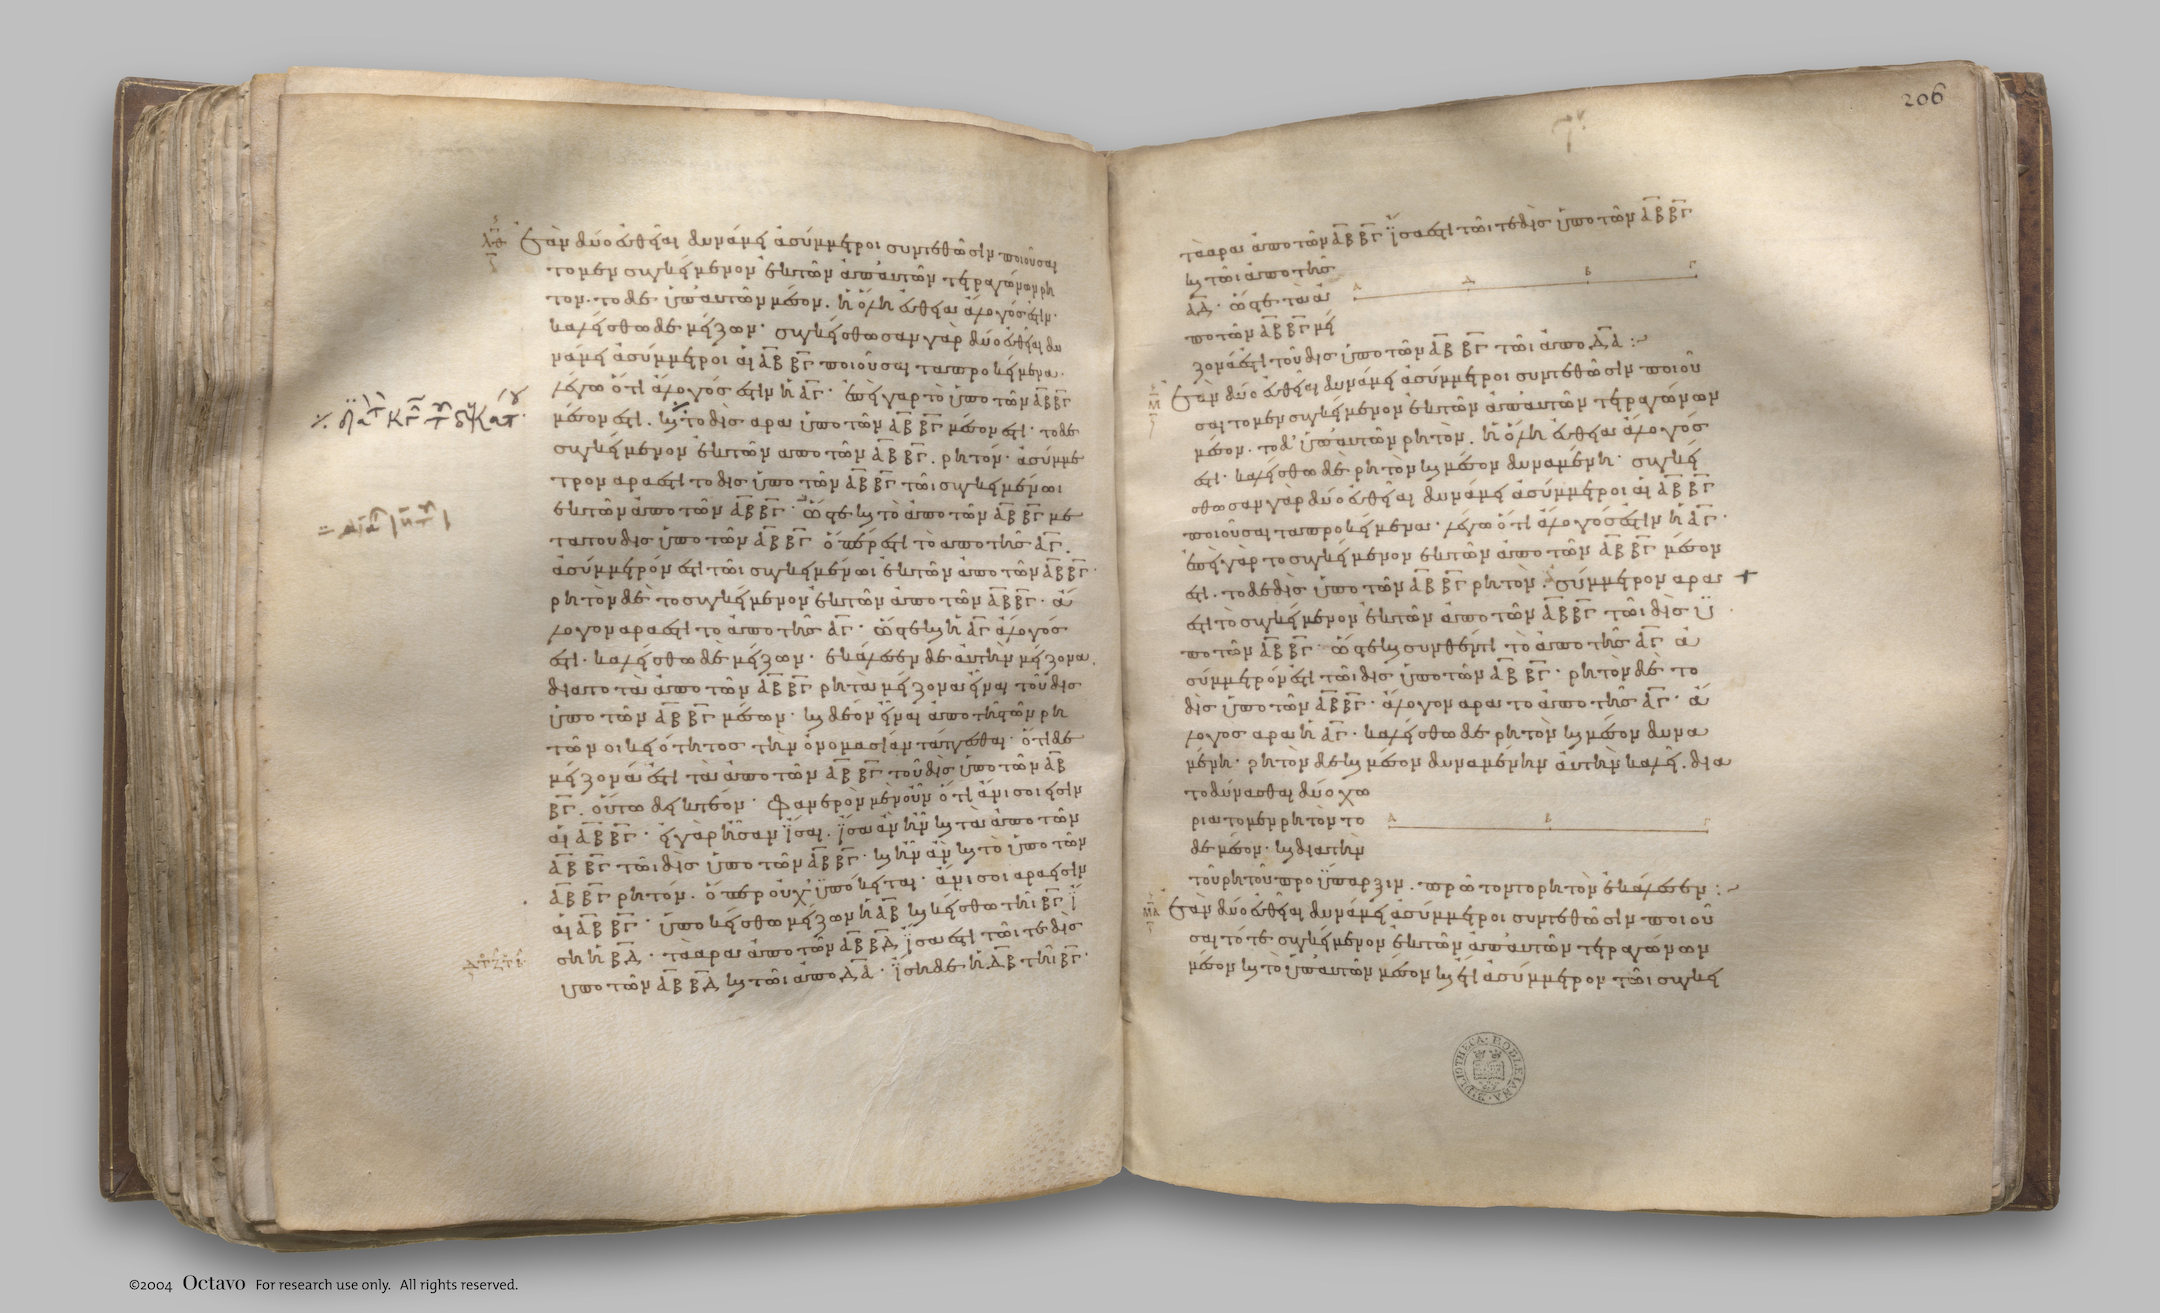 λθ Ἐὰν δύο εὐθεῖαι δυνάμει ἀσύμμετροι συντεθῶσιν ποιοῦσαι
το μεν συγκείμενον ἐκ τῶν ἀπ' αὐτῶν τετραγώνων ρη
τον· το δε ὑπ' αὐτῶν μέσον. ἡ ὅλη εὐθεῖα ἄλογός ἐστιν·
καλείσθω δε μείζων· συγκείσθωσαν γὰρ δύο εὐθεῖαι δυ
νάμει ἀσύμμετροι αἱ ΑΒ ΒΓ ποιοῦσαι τα προκείμενα.
λέγω ὅτι ἄλογός ἐστιν ἡ ΑΓ· ἐπεὶ γαρ τὸ ὑπο τῶν ΑΒ ΒΓ
μέσον ἐστι. καὶ το δὶς αρα ὑπο τῶν ΑΒ ΒΓ μέσον ἐστι· το δε
συγκείμενον ἐκ τῶν απο τῶν ΑΒ ΒΓ. ρητόν· ἀσύμμε
τρον αρα ἐστὶ το δις ὑπο τῶν ΑΒ ΒΓ τῶι συγκειμένωι
ἐκ τῶν ἀπο τῶν ΑΒ ΒΓ· ὥστε καὶ τὸ ἀπο τῶν ΑΒ ΒΓ με
τα του δις ὑπο τῶν ΑΒ ΒΓ ὅπέρ ἐστι τὸ απο τῆς ΑΓ.
ἀσύμμετρόν ἐστι τῶι συγκειμένωι ἐκ τῶν απο τῶν ΑΒ ΒΓ·
ρητὸν δὲ το συγκείμενον ἐκ τῶν ἀπο τῶν ΑΒ ΒΓ· ἄ
λογον αρα ἐστὶ το ἀπο τῆς ΑΓ· ὥστε καὶ ἡ ΑΓ ἄλογός
ἐστι· καλείσθω δὲ μείζων· ἐκάλεσεν δε ἀυτὴν μείζονα.
δια το τὰ ἀπο τῶν ΑΒ ΒΓ ρητὰ μείζονα εἶναι τοῦ δὶς
ὑπο τῶν ΑΒ ΒΓ μέσων· καὶ δέον εἶναι ἀπο τῆς τῶν ρη
τῶν οικειότητος τὴν ὀνομασίαν τάττεσθαι· ὅτι δε
μείζονά ἐστι τὰ ἀπο τῶν ΑΒ ΒΓ τοῦ δὶς ὑπο τῶν ΑΒ
ΒΓ. οὕτω δεικτέον· Φανερὸν μὲν οὖν ὅτι ἄνισοι εἰσὶν
αἱ ΑΒ ΒΓ· εἰ γὰρ ἦσαν ἴσαι. ἴσα ἂν ἦν καὶ τὰ ἀπο τῶν
ΑΒ ΒΓ τῶι δὶς ὑπο τῶν ΑΒ ΒΓ· καὶ ἦν ἂν καὶ τὸ ὑπο τῶν
ΑΒ ΒΓ ρητόν. ὅπερ οὐχ' ὑπόκειται· ἄνισοι αρα εἰσὶν
αἱ ΑΒ ΒΓ· ὑποκείσθω μείζων ἡ ΑΒ καὶ κείσθω τῆι ΒΓ ἴ
ση ἡ ΒΔ· τὰ αρα ἀπο τῶν ΑΒ ΒΔ ἴσα ἐστι τῶι τε δὶς
ὑπο τῶν ΑΒ ΒΔ καὶ τῶι ἀπο ΔΑ· ἴση δε ἡ ΔΒ τῆι ΒΓ·
206
τὰ αρα ἀπο τῶν ΑΒ ΒΓ ἴσα ἐστὶ τῶι τε δὶς ὑπο τῶν ΑΒ ΒΓ
καὶ τῶι ἀπο τῆς
ΑΔ· ὥστε τὰ ἀ
πο τῶν ΑΒ ΒΓ μεί
Α Δ Β Γ
ζονά ἐστι τοῦ δις ὑπο τῶν ΑΒ ΒΓ τῶι ἀπο ΔΑ :~
Μ Ἐὰν δύο εὐθεῖαι δυνάμει ἀσύμμετροι συντεθῶσιν ποιοῦ
σαι το μεν συγκείμενον ἐκ τῶν ἀπ' αυτῶν τετραγώνων
μέσον. το δ' ὑπ' αυτῶν ρητὸν. ἡ ὅλη εὐθεῖα ἄλογός
ἐστι· καλείσθω δὲ ρητὸν καὶ μέσον δυναμένη· συγκεί
σθωσαν γὰρ δύο εὐθεῖαι δυνάμει ἀσύμμετροι αἱ ΑΒ ΒΓ
ποιοῦσαι τα προκείμενα· λέγω ὅτι ἄλογός ἐστιν ἡ ΑΓ·
ἐπεὶ γὰρ το συγκείμενον ἐκ τῶν ἀπο τῶν ΑΒ ΒΓ μέσον
ἐστι. το δε δὶς ὑπο τῶν ΑΒ ΒΓ ρητὸν. ἀσύμμετρον αρα +
ἐστι τὸ συγκείμενον ἐκ τῶν ἀπο τῶν ΑΒ ΒΓ τῶι δὶς ὑ
πο τῶν ΑΒ ΒΓ· ὥστε καὶ συνθέντι τὸ ἀπο τῆς ΑΓ ἀ
σύμμετρόν ἐστι τῶι δὶς ὑπο τῶν ΑΒ ΒΓ· ρητὸν δὲ το
δὶς ὑπο τῶν ΑΒ ΒΓ· ἄλογον αρα το ἀπο τῆς ΑΓ· ἄ
λογος αρα ἡ ΑΓ· καλείσθω δε ρητὸν καὶ μέσον δυνα
μένη· ρητὸν δε καὶ μέσον δυναμένην ἀυτὴν καλεῖ. δια
το δύνασθαι δύο χω
ρία το μεν ρητὸν το
δε μέσον· καὶ δια τὴν
Α Β Γ
τοῦ ρητοῦ προϋπαρξιν. πρῶτον το ρητὸν ἐκάλεσεν :~
ΜΑ Ἐὰν δύο εὐθεῖαι δυνάμει ἀσύμμετροι συντεθῶσιν ποιοῦ
σαι τό τε συγκείμενον ἐκ τῶν ἀπ' αυτῶν τετραγώνων
μέσον καὶ τὸ ὑπ' αυτῶν μέσον καὶ ἔτι ἀσύμμετρον τῶι συγκει
BIBLIOTHECA BODLEIANA
©2004 Octavo For research use only. All rights reserved.